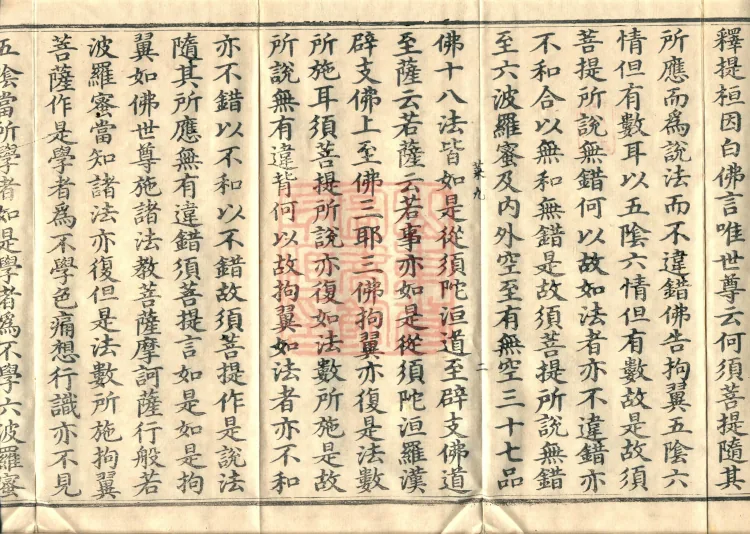 釋提桓因白佛言唯世尊云何須菩提隨其
所應而爲說法而不違錯佛告拘翼五陰六
情但有數耳以五陰六情但有數故是故須
菩提所說無錯何以故如法者亦不違錯亦
不和合以無和無錯是故須菩提所說無錯
至六波羅蜜及內外空至有無空三十七品
菜九
二
佛十八法皆如是從須陀洹道至辟支佛道
至薩云若薩云若事亦如是從須陀洹羅漢
辟支佛上至佛三耶三佛拘翼亦復是法數
所施耳須菩提所說亦復如法數所施是故
所說無有違背何以故拘翼如法者亦不和
亦不錯以不和以不錯故須菩提作是說法
隨其所應無有違錯須菩提言如是如是拘
翼如佛世尊施諸法教菩薩摩訶薩行般若
波羅蜜當知諸法亦復但是法數所施拘翼
菩薩作是學者爲不學色痛想行識亦不見
五陰當所學者如是學者爲不學六波羅蜜